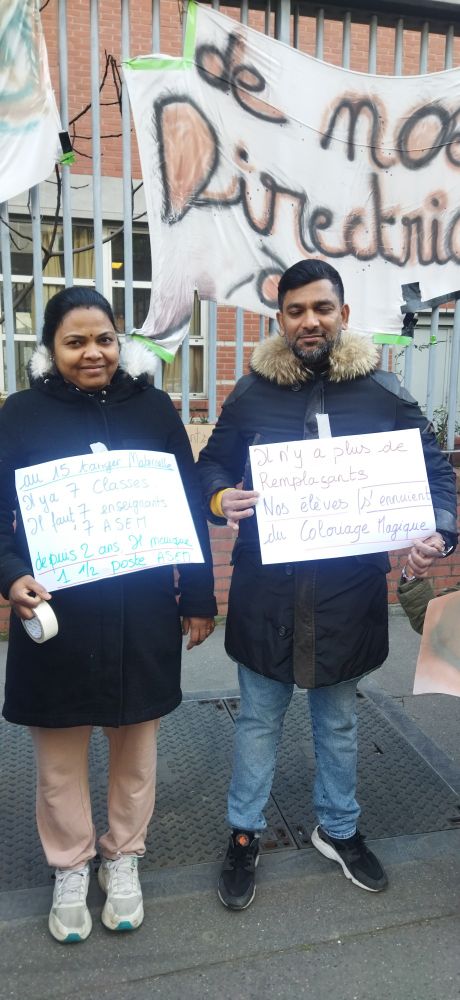 de nos
Directric
au 15 tanger Maternelle
Il y a 7 Classes
Il faut 7 enseignants
7 ASEM
depuis 2 ans. Il manque
1 1/2 poste ASEM
Il n'y a plus de
Remplaçants
Nos élèves s'ennuient
du Colouage Magique